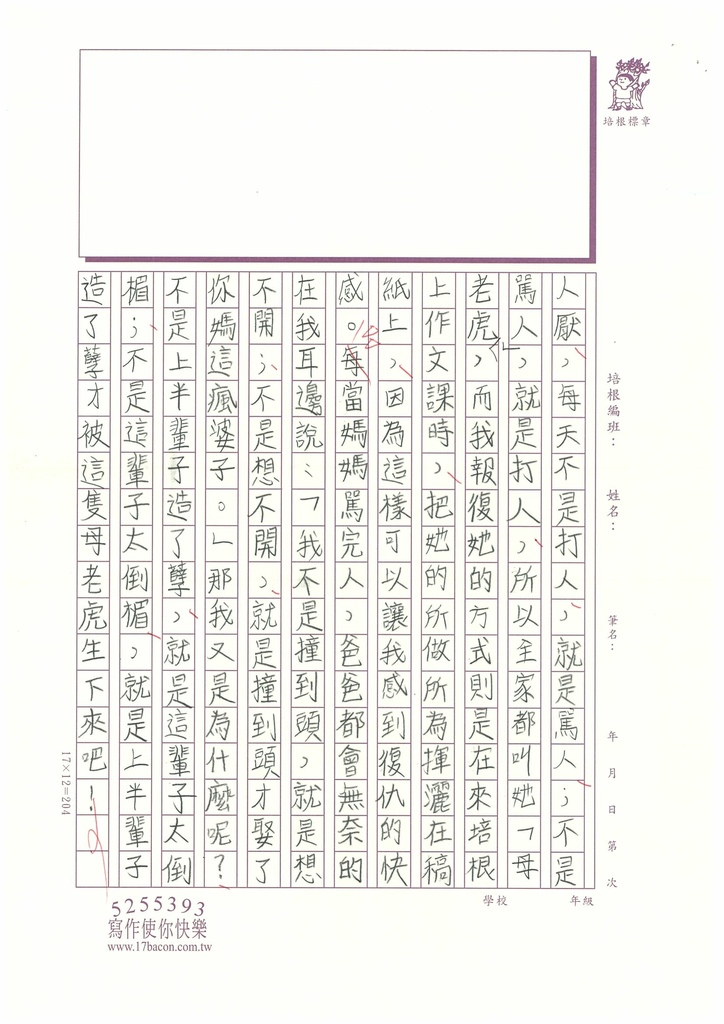 培根標章
培根編班：　姓名：　筆名：　年　月　日　第　次
人厭，每天不是打人，就是罵人；不是
罵人，就是打人，所以全家都叫她「母
老虎」，而我報復她的方式則是在來培根
上作文課時，把她的所做所為揮灑在稿
紙上，因為這樣可以讓我感到復仇的快
感。每當媽媽罵完人，爸爸都會無奈的
在我耳邊說：「我不是撞到頭，就是想
不開；不是想不開，就是撞到頭才娶了
你媽這瘋婆子。」那我又是為什麼呢？
不是上半輩子造了孽，就是這輩子太倒
楣；不是這輩子太倒楣，就是上半輩子
造了孽才被這隻母老虎生下來吧！
17×12=204
學校　年級
5255393
寫作使你快樂
www.17bacon.com.tw